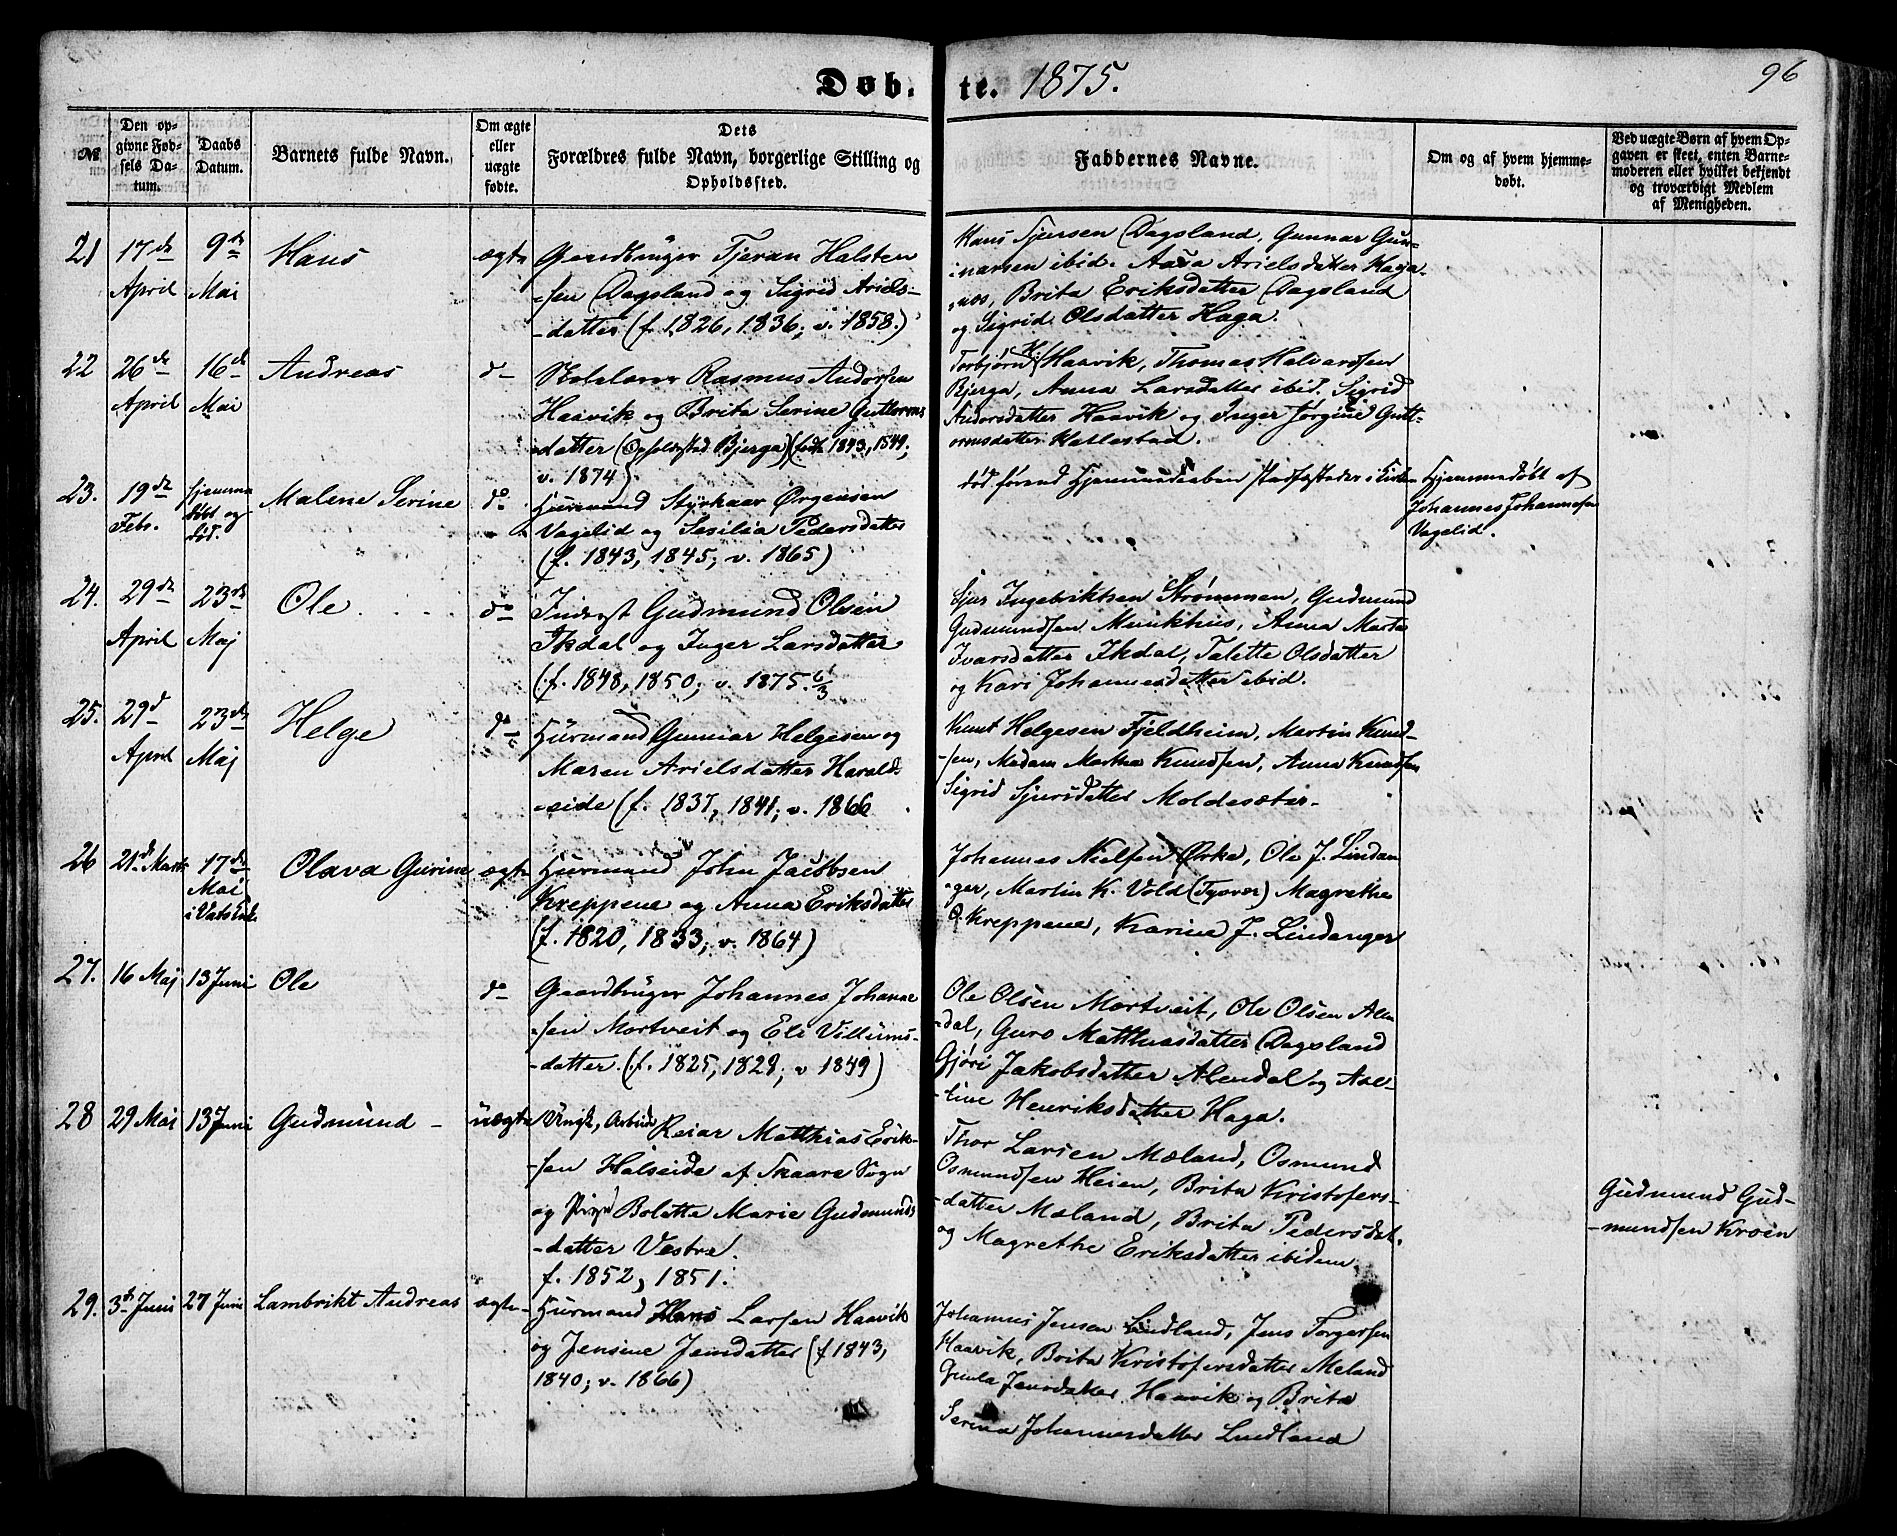 Døb. te. 1875.
96
№
Den opgivne Fødsels Datum.
Daabs Datum.
Barnets fulde Navn.
Om ægte eller uægte fødte.
Dets Forældres fulde Navn, borgerlige Stilling og Opholdssted.
Faddernes Navne.
Om og af hvem hjemmedøbt.
Ved uægte Børn af hvem Opgaven er skeet, enten Barnemoderen eller hvilket bekjendt og troværdigt Medlem af Menigheden.
21 17de April 9de Mai Hans ægte
Gaardbruger Tjeran Halsten
-sen Dagsland og Sigrid Ariels-
-datter (f. 1826, 1836; v. 1858.)
Hans Sjursen Dagsland, Gunnar Gun-
narsen ibid. Aasa Arielsdatter Haga
, Brita Eriksdatter Dagsland
og Sigrid Olsdatter Haga.
22 26de April 16de Mai Andreas do
Skolelærer Rasmus Andorsen
Haavik og Brita Serine Guttorms
-datter (Opholdssted Bjerga) (født 1843, 1849;
v. 1874)
Torbjørn H. Haavik, Thomas Halvardsen
Bjerga, Anna Larsdatter ibid, Sigrid
Andorsdatter Haavik og Inger Jorgine Gutt-
ormsdatter Hallestad.
23. 19de Febr. Hjemmedøbt og død. Malene Serine do
Huusmand Styrkaar Ørgensen
Vagelid og Sesilia Pedersdatter
(f. 1843, 1845, v. 1865)
død førend Hjemmedaaben stadfæstedes i Kirken
Hjemmedøbt af
Johannes Johannesen
Vagelid.
24. 29de April 23de Maj Ole do
Inderst Gudmund Olsen
Ikdal og Inger Larsdatter
(f. 1848, 1850; v. 1875. 6/3
Sjur Ingebriktsen Strømmen, Gudmund
Gudmundsen Munkhus, Anna Marta
Ivarsdatter Ikdal, Talette Olsdatter
og Kari Johannesdatter ibid.
25. 29d April 23de Maj Helge do
Huusmand Gunnar Helgesen og
Maren Arielsdatter Harald-
-seide (f. 1837, 1841; v. 1866
Knut Helgesen Fjeldheim, Martin Knud-
-sen, Madam Martha Knudsen, Anna Knudsen
Sigrid Sjursdatter Moldesæter-
26 21de Marts 17de Mai i Vats Kirke Olava Gurine ægte
Huusmand John Jacobsen
Kreppene og Anna Eriksdatter
(f. 1820, 1833; v. 1864)
Johannes Nielsen Ørke, Ole J. Lindan
-ger, Martin K. Vold (Tysvær) Magrethe
O. Kreppene, Karina J. Lindanger
27. 16 Maj 13 Juni Ole do
Gaardbruger Johannes Johanne
-sen Mortveit og Eli Villums-
-datter. (f. 1825, 1829; v 1849)
Ole Olsen Mortveit, Ole Olsen Alen
-dal, Guro Matthiasdatter Dagsland
Gjøri Jakobsdatter Alendal og Axe-
-line Henriksdatter Haga.
28 29 Mai 13 Juni Gudmund - uægte
Ungk., Arbeider Reiar Matthias Erik-
-sen Halseide af Skaare Sogn
og Pige Bolette Marie Gudmunds
-datter Vestre.
f. 1852, 1851.
Thor Larsen Mæland, Osmund
Osmundsen Heien, Brita Kristofers-
-datter Mæland, Brita Pedersdat.
og Magrethe Eriksdatter ibidem
Gudmund Gud-
-mundsen Kroen
29. 3de Juni 27 Juni Lambrikt Andreas ægte
Huusmand Hans Larsen Haavik
og Jensine Jensdatter (f 1843,
1840; v. 1866)
Johannes Jensen Lindland, Jens Torgersen
Haavik, Brita Kristofersdatter Meland
Gunla Jensdatter Haavik og Brita
Serina Johannesdatter Lindland